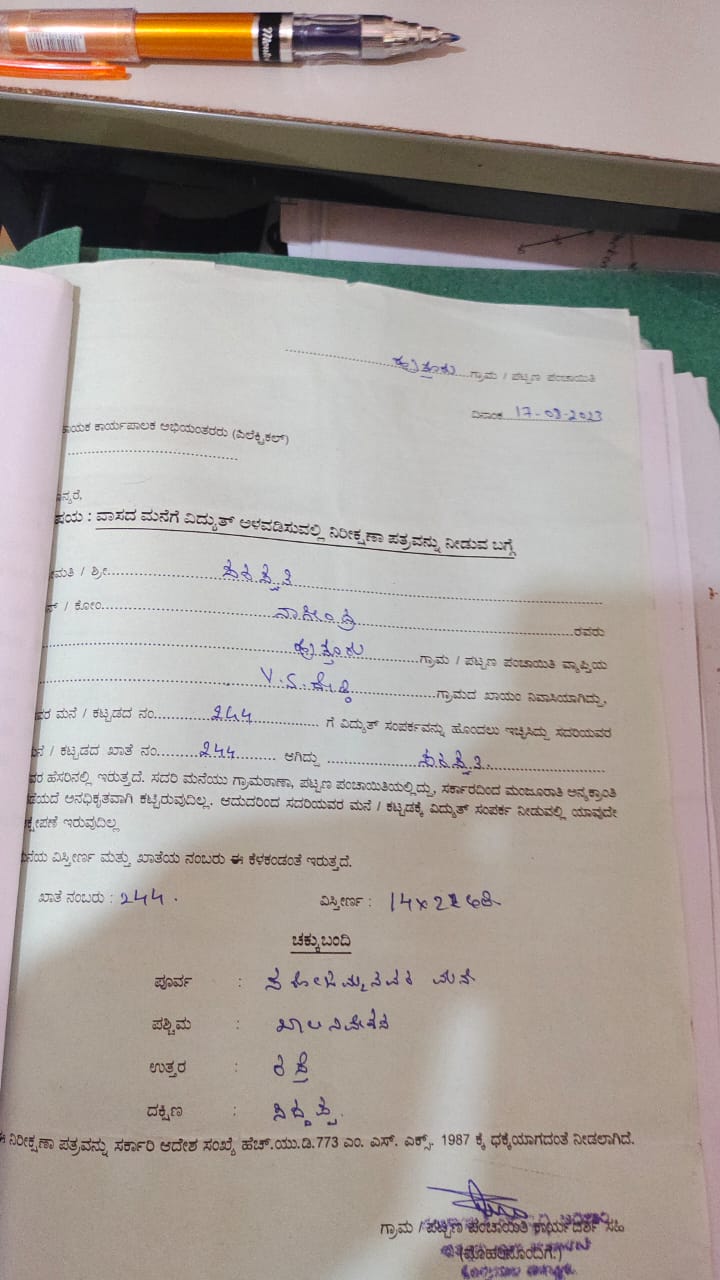 ಹುತ್ತೂರು ಗ್ರಾಮ / ಪಟ್ಟಣ ಪಂಚಾಯಿತಿ
ದಿನಾಂಕ 17-03-2023
ಕಾರ್ಯಪಾಲಕ ಅಭಿಯಂತರರು (ಎಲೆಕ್ಟ್ರಿಕಲ್)
: ವಾಸದ ಮನೆಗೆ ವಿದ್ಯುತ್ ಅಳವಡಿಸುವಲ್ಲಿ ನಿರೀಕ್ಷಣಾ ಪತ್ರವನ್ನು ನೀಡುವ ಬಗ್ಗೆ
/ ಶ್ರೀ
/ ಕೋಂ ರವರು
ಹುತ್ತೂರು ಗ್ರಾಮ / ಪಟ್ಟಣ ಪಂಚಾಯಿತಿ ವ್ಯಾಪ್ತಿಯ
ಗ್ರಾಮದ ಖಾಯಂ ನಿವಾಸಿಯಾಗಿದ್ದು,
ಮನೆ / ಕಟ್ಟಡದ ನಂ 244 ಗೆ ವಿದ್ಯುತ್ ಸಂಪರ್ಕವನ್ನು ಹೊಂದಲು ಇಚ್ಛಿಸಿದ್ದು ಸದರಿಯವರ
/ ಕಟ್ಟಡದ ಖಾತೆ ನಂ 244 ಆಗಿದ್ದು
ಹೆಸರಿನಲ್ಲಿ ಇರುತ್ತದೆ. ಸದರಿ ಮನೆಯು ಗ್ರಾಮಠಾಣಾ, ಪಟ್ಟಣ ಪಂಚಾಯಿತಿಯಲ್ಲಿದ್ದು, ಸರ್ಕಾರದಿಂದ ಮಂಜೂರಾತಿ ಅನ್ಯಕ್ರಾಂತಿ
ಅನಧಿಕೃತವಾಗಿ ಕಟ್ಟಿರುವುದಿಲ್ಲ. ಆದುದರಿಂದ ಸದರಿಯವರ ಮನೆ / ಕಟ್ಟಡಕ್ಕೆ ವಿದ್ಯುತ್ ಸಂಪರ್ಕ ನೀಡುವಲ್ಲಿ ಯಾವುದೇ
ಇರುವುದಿಲ್ಲ
ವಿಸ್ತೀರ್ಣ ಮತ್ತು ಖಾತೆಯ ನಂಬರು ಈ ಕೆಳಕಂಡಂತೆ ಇರುತ್ತದೆ.
ಖಾತೆ ನಂಬರು : 244. ವಿಸ್ತೀರ್ಣ :
ಚಕ್ಕುಬಂದಿ
ಪೂರ್ವ : ಸರೋಜಮ್ಮನವರ ಮನೆ
ಪಶ್ಚಿಮ : ಖಾಲಿ ನಿವೇಶನ
ಉತ್ತರ : ರಸ್ತೆ
ದಕ್ಷಿಣ :
ನಿರೀಕ್ಷಣಾ ಪತ್ರವನ್ನು ಸರ್ಕಾರಿ ಆದೇಶ ಸಂಖ್ಯೆ ಹೆಚ್.ಯು.ಡಿ.773 ಎಂ. ಎಸ್. ಎಕ್ಸ್. 1987 ಕ್ಕೆ ಧಕ್ಕೆಯಾಗದಂತೆ ನೀಡಲಾಗಿದೆ.
ಗ್ರಾಮ / ಪಟ್ಟಣ ಪಂಚಾಯಿತಿ ಕಾರ್ಯದರ್ಶಿ ಸಹಿ
(ಮೊಹರಿನೊಂದಿಗೆ.)